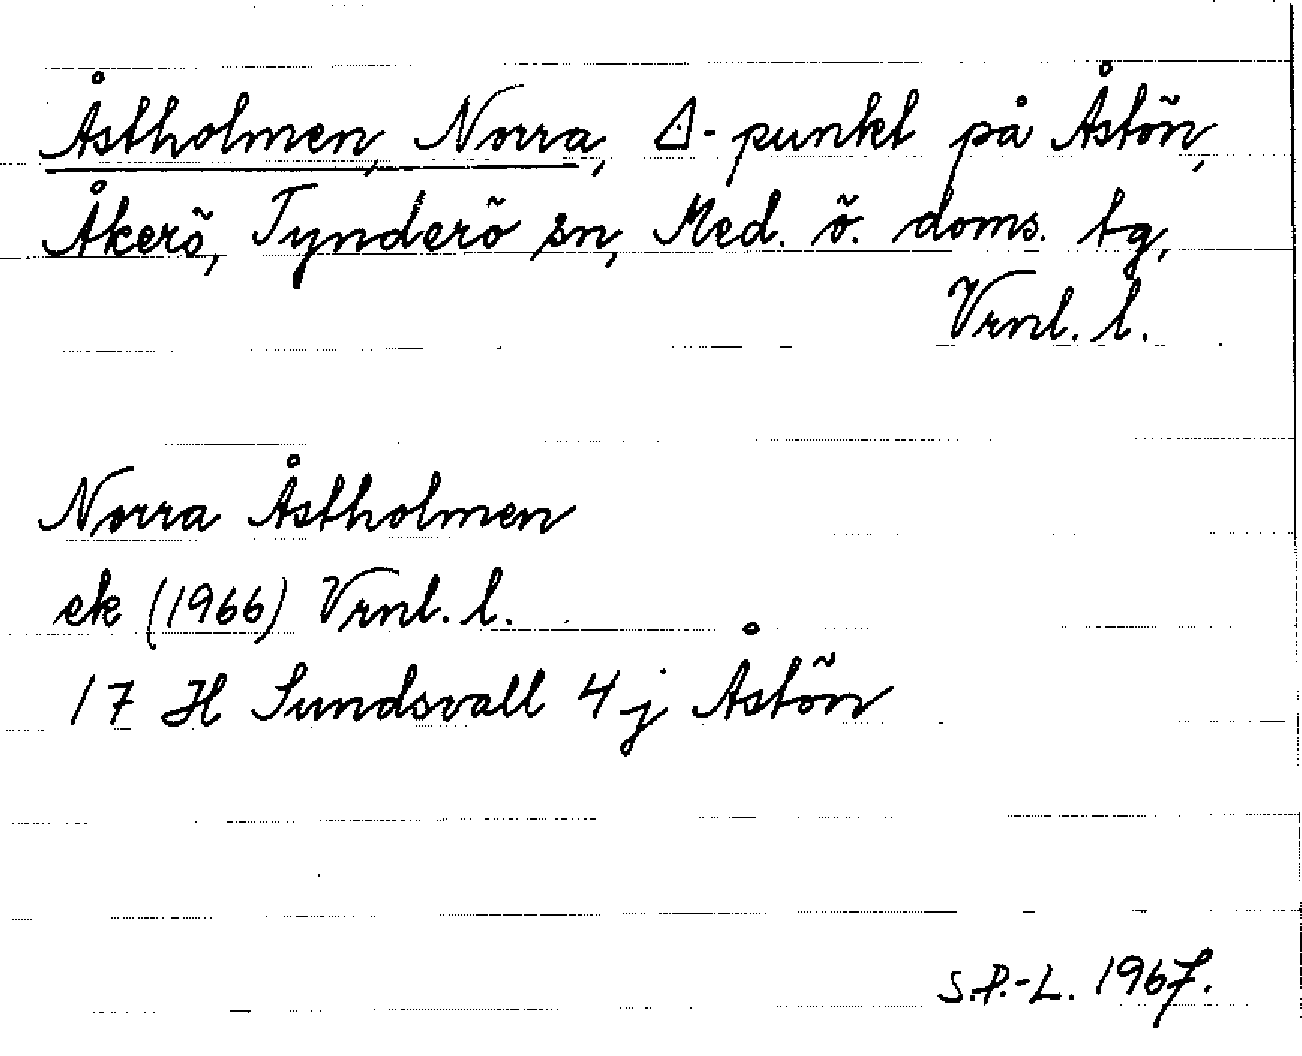 Åstholmen, Norra, Δ-punkt på Åstön,
Åkerö, Tynderö sn, Med. ö. doms. tg,
Vrnl. l.
Norra Åstholmen
ek (1966) Vrnl. l.
17 H Sundsvall 4j Åstön
S.P.-L. 1967.